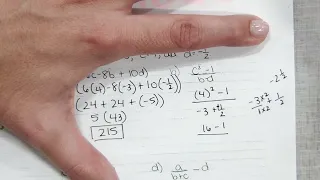 d = -1/2
6c - 8b + 10d)
(6(4) - 8(-3) + 10(-1/2))
(24 + 24 + (-5))
5(43)
215
c² - 1
b - d
(4)² - 1
-3 + 1/2
16 - 1
-2 1/2
-3 ×2 + 1/2
1 ×2
d) a
b+c - d